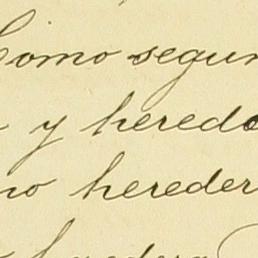 Como segun
y heredo
no hereder